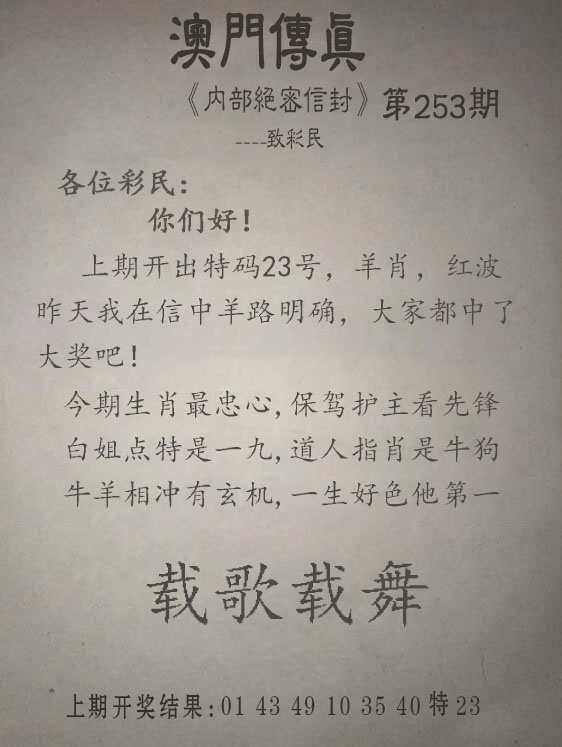 澳門傳眞
《内部絕密信封》第253期
----致彩民
各位彩民：
你们好！
上期开出特码23号，羊肖，红波
昨天我在信中羊路明确，大家都中了
大奖吧！
今期生肖最忠心,保驾护主看先锋
白姐点特是一九,道人指肖是牛狗
牛羊相冲有玄机,一生好色他第一
载歌载舞
上期开奖结果:01 43 49 10 35 40 特 23